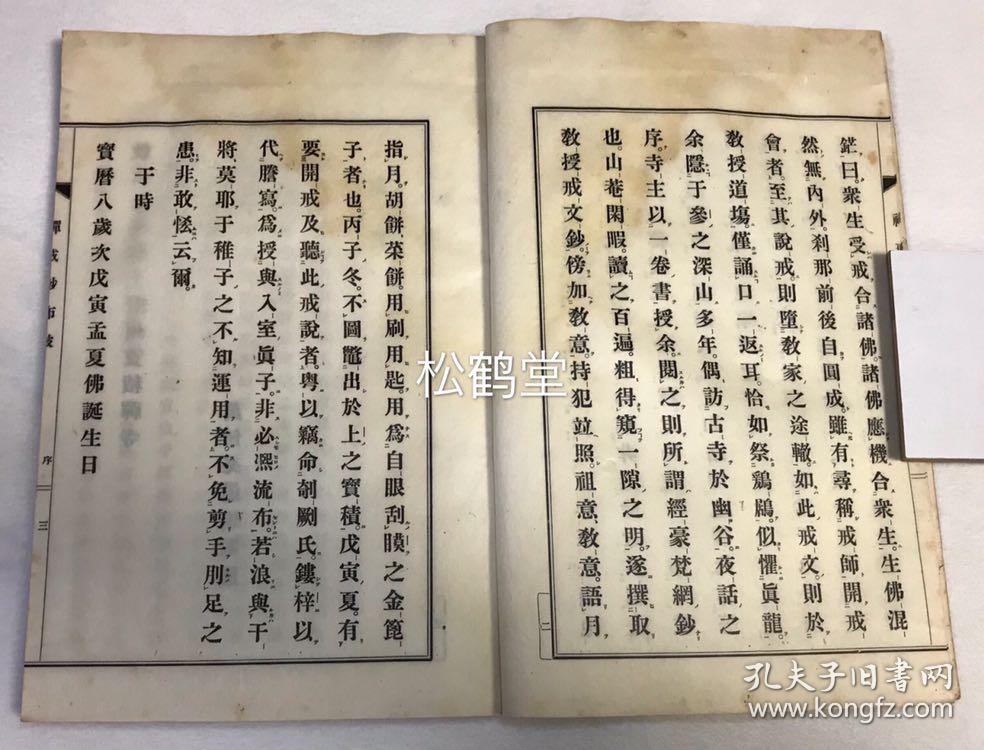 鋩曰衆生受戒合諸佛。諸佛應機合衆生。生佛混
然無內外。刹那前後自圓成。雖有尋稱戒師開戒
會者。至其說戒。則墮敎家之途轍。如此戒文則於
敎授道塲。僅誦口一返耳。恰如祭鷄鴟。似懼眞龍。
余隱于參之深山多年。偶訪古寺於幽谷。夜話之
序。寺主以一卷書授余。閱之則所謂經豪梵網鈔
也。山菴閑暇。讀之百遍。粗得窺一隙之明。遂撰取
敎授戒文鈔。傍加敎意。持犯竝照。祖意敎意。語月
指月。胡餅菜餅。用刷用匙。用爲自眼刮膜之金篦
子者也。丙子冬。不圖鼈出於上之寶積。戊寅夏。有
要開戒及聽此戒說者。粤以竊命剞劂氏。鏤梓以
代謄寫。爲授與入室眞子。非必凞流布。若浪與干
將莫耶于稚子之不知運用者。不免剪手刖足之
患。非敢悋云爾。
于時
寶曆八歲次戊寅孟夏佛誕生日
序
三
二
松鹤堂
孔夫子旧书网
www.kongfz.com